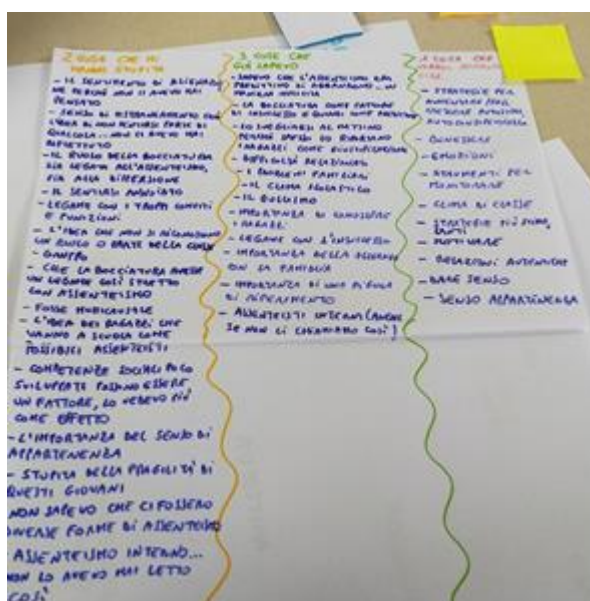 2 COSE CHE MI
HANNO STUPITA
- IL SENTIMENTO DI ALIENAZIO
NE PERCHÉ NON CI AVEVO MAI
PENSATO
- SENSO DI
IDEA DI NON SENTIRSI PARTE DI
QUALCOSA... NON CI AVEVO MAI
RIFLETTUTO
- IL RUOLO DELLA BOCCIATURA
SIA LEGATA ALL'ASSENTEISMO,
SIA ALLA DISPERSIONE
- IL SENTIRSI ANNOIATO
- LEGAME CON I TROPPI COMPITI
E PUNIZIONI
- L'IDEA CHE NON SI RICONOSCONO
UN RUOLO O PARTE DELLA CLASSE
- CHE LA BOCCIATURA AVESSE
UN LEGAME COSÌ STRETTO
CON ASSENTEISMO
- FOSSE MULTICAUSALE
- L'IDEA DEI RAGAZZI CHE
VANNO A SCUOLA COME
POSSIBILI ASSENTEISTI
- COMPETENZE SOCIALI POCO
SVILUPPATE POSSONO ESSERE
UN FATTORE, LO VEDEVO PIÙ
COME EFFETTO
- L'IMPORTANZA DEL SENSO DI
APPARTENENZA
- STUPITA DELLA FRAGILITÀ DI
QUESTI GIOVANI
NON SAPEVO CHE CI FOSSERO
DIVERSE FORME DI ASSENTEISMO
ASSENTEISMO INTERNO...
NON LO AVEVO MAI LETTO
COSÌ
3 COSE CHE
GIÀ SAPEVO
- SAPEVO CHE L'ASSENTEISMO ERA
PREDITTIVO DI ABBANDONO... IN
MANIERA IMPLICITA
- LA BOCCIATURA COME FATTORE
DI INSUCCESSO E QUINDI COME
- LO SVEGLIARSI AL MATTINO
PERCHÉ SPESSO LO
I RAGAZZI COME GIUSTIFICAZIONE
- DIFFICOLTÀ RELAZIONALI
- I PROBLEMI FAMILIARI
- IL CLIMA SCOLASTICO
- IL BULLISMO
- IMPORTANZA DI CONOSCERE
I RAGAZZI
- LEGAME CON L'INSUCCESSO
- IMPORTANZA DELLA
CON LA FAMIGLIA
- IMPORTANZA DI UNA FIGURA
DI RIFERIMENTO
- ASSENTEISTI INTERNI (ANCHE
SE NON LI CHIAMIAMO COSÌ)
COSA CHE
- STRATEGIE PER
AUMENTARE
- BENESSERE
- EMOZIONI
- STRUMENTI PER
MONITORARE
- CLIMA DI CLASSE
- STRATEGIE PIÙ
- MOTIVARE
- RELAZIONI AUTENTICHE
- DARE SENSO
- SENSO APPARTENENZA